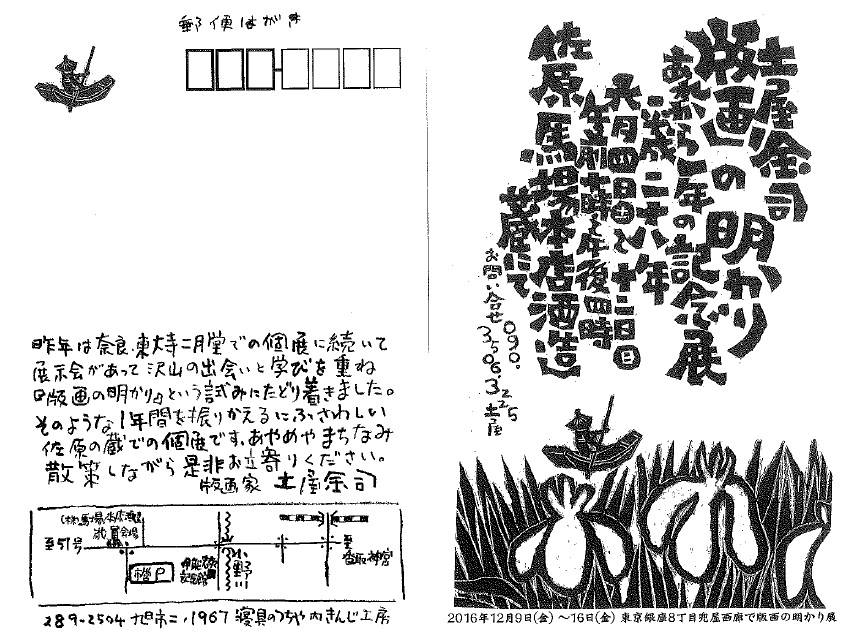 郵便はがき
昨年は奈良・東大寺二月堂での個展に続いて
展示会があって沢山の出会いと学びを重ね
『版画の明かり』という試みにたどり着きました。
そのような1年間を振りかえるにふさわしい
佐原の蔵での個展です。あやめやまちなみ
散策しながら是非お立寄りください。
版画家 土屋金司
(株)馬場本店酒造
蔵 展会場
至51号
小野川
至
香取神宮
289-2504 旭市ニ・1967 寝具のつちや内きんじ工房
土屋金司
版画の明かり
あれから一年の記念展
平成二十八年
六月四日(土)と十二日(日)
午前十時と午後四時
佐原馬場本店酒造
蔵にて
お問い合せ 090.
3506.3225
土屋
2016年12月9日(金) 〜16日(金) 東京銀座8丁目兜屋画廊で版画の明かり展